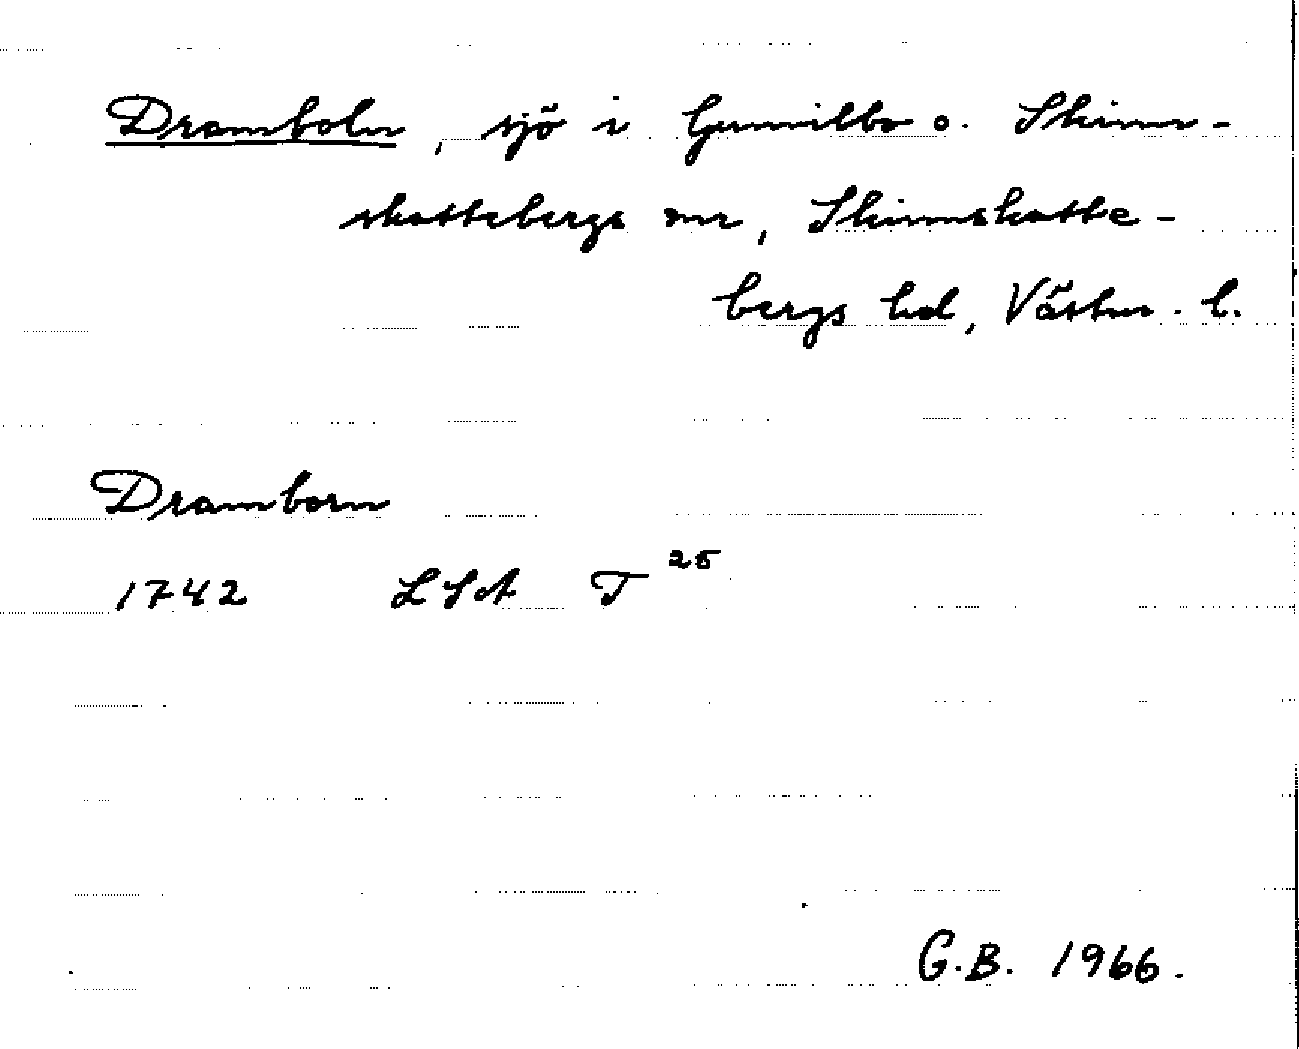 Dramboln, sjö i Gunnilbo o. Skinn-
skattebergs snr, Skinnskatte-
bergs hd, Västm. l.
Dramborn
1742 LSA T 25
G.B. 1966.